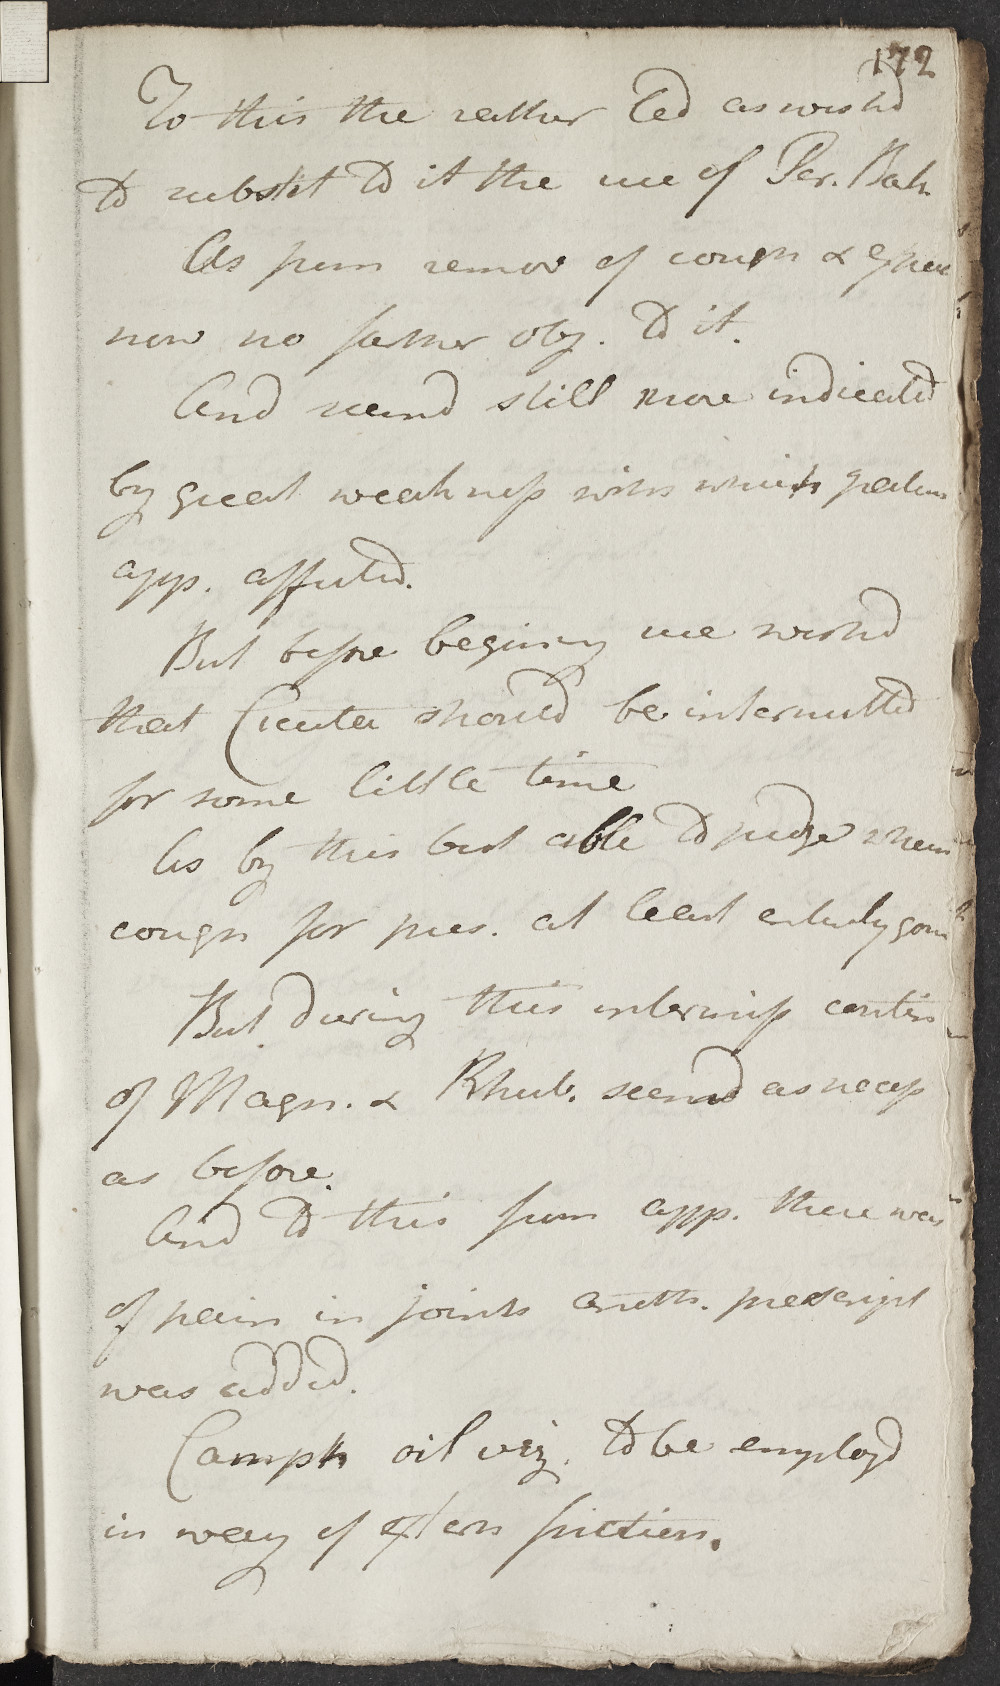 172
To this the rather led as wishd
to substit to it the use of Per. Bark
As from remov of cough & Expec
now no farther obj. to it.
And seemd still more indicated
by great weakness with which patient
app. affected.
But before beginng use wishd
that Cicuta should be intermitted
for some little time
As by this best able to judge when
cough for pres. at least entirely gone
But during this intermiss contin
of Magn. & Rhub. seemd as necess
as before.
And to this from app. there was
of pain in joints anoth. prescript
was added.
Camph oil viz. to be employd
in way of extern friction.